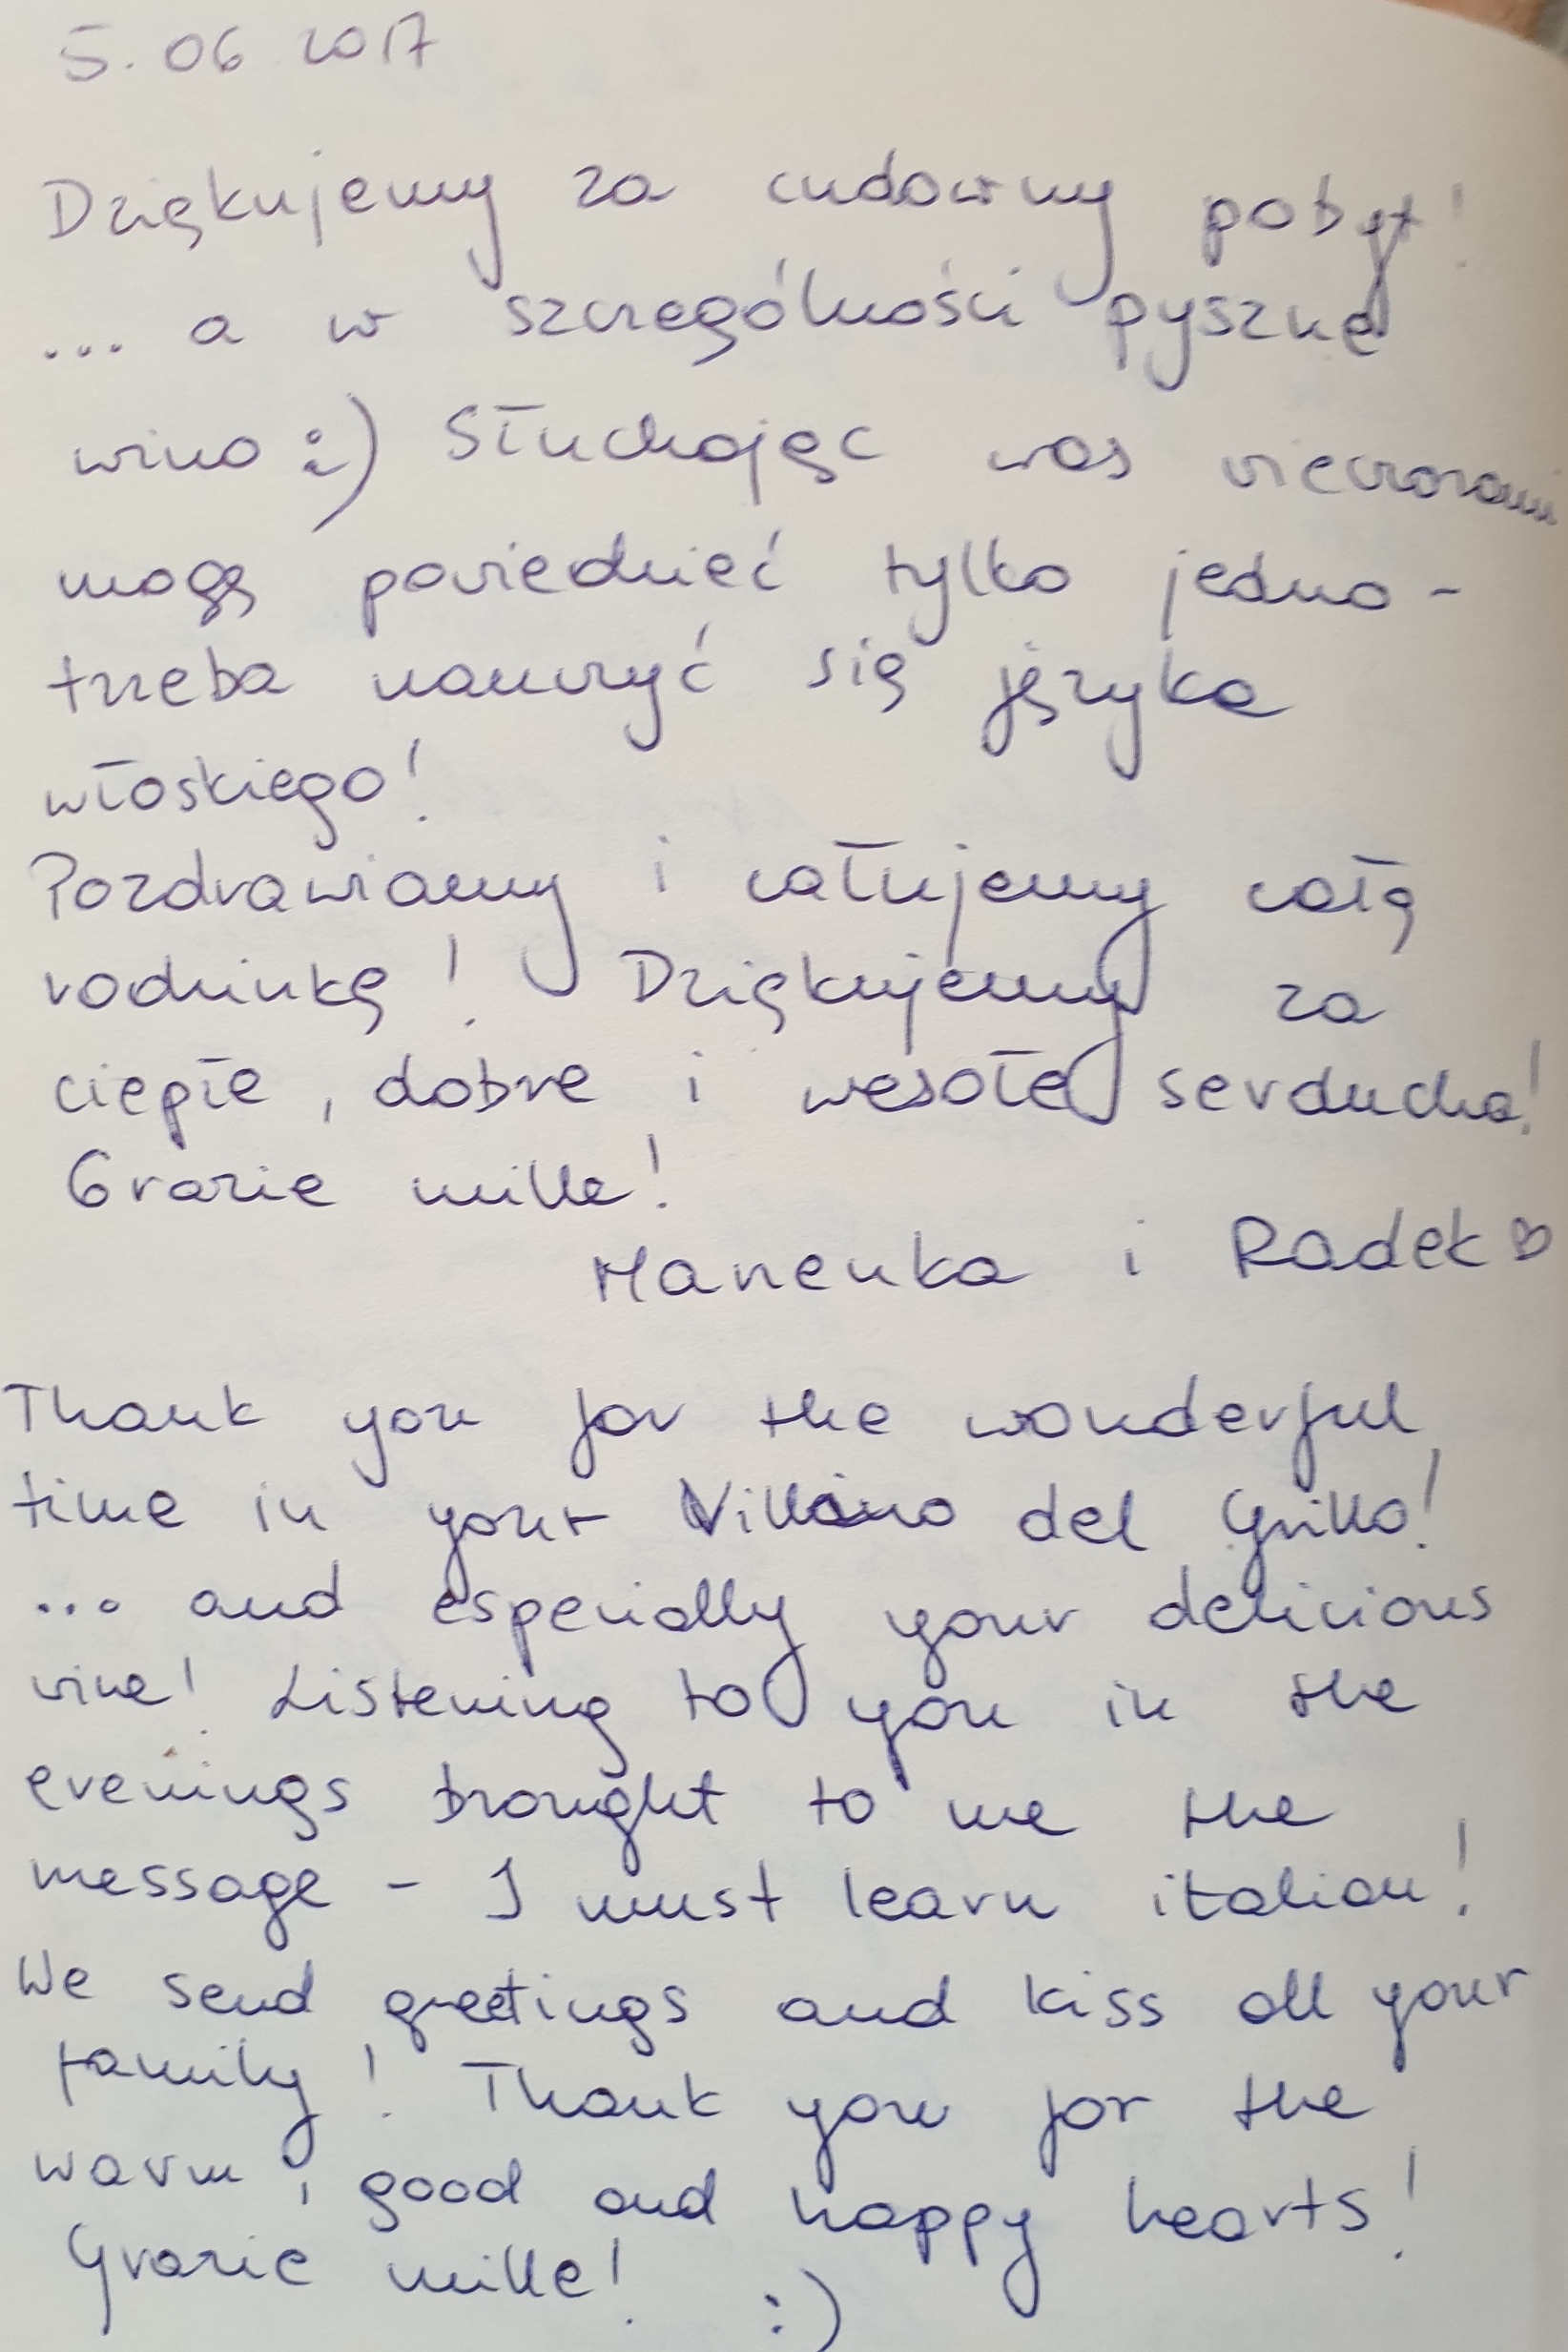 5. 06 2017
Dziękujemy za cudowny pobyt!
... a w szczególności pyszne
wino :) Słuchając was wieczorami
mogę powiedzieć tylko jedno -
trzeba nauczyć się języka
włoskiego!
Pozdrawiamy i całujemy całą
rodzinkę! Dziękujemy za
ciepłe, dobre i wesołe serducha!
Grazie mille!
Marzenka i Radek ♡
Thank you for the wonderful
time in your Villino del Grillo!
... and especially your delicious
wine! Listening to you in the
evenings brought to me the
message - I must learn italian!
We send greetings and kiss all your
family! Thank you for the
warm, good and happy hearts!
Grazie mille! :)